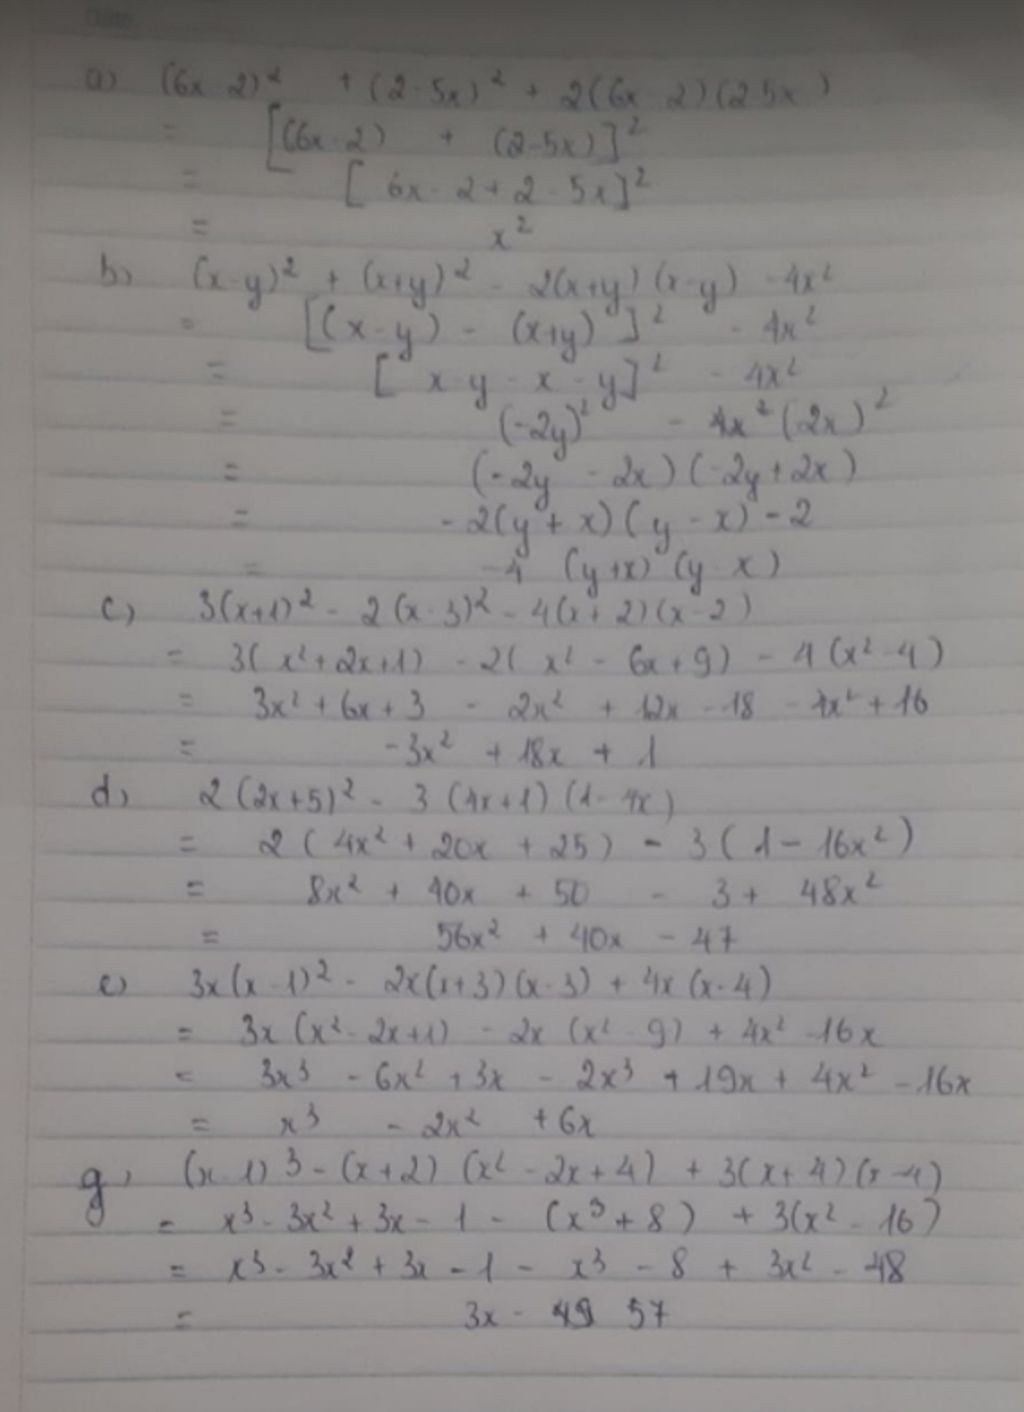 a) (6x-2)² + (2-5x)² + 2(6x-2)(2-5x)
= [(6x-2) + (2-5x)]²
= [6x-2+2-5x]²
= x²
b) (x-y)² + (x+y)² - 2(x+y)(x-y) - 4x²
= [(x-y) - (x+y)]² - 4x²
= [x-y-x-y]² - 4x²
= (-2y)² - (2x)²
= (-2y-2x)(-2y+2x)
= -2(y+x)(y-x)-2
= -4 (y+x)(y-x)
c) 3(x+1)² - 2(x-3)² - 4(x+2)(x-2)
= 3(x²+2x+1) - 2(x²-6x+9) - 4(x²-4)
= 3x²+6x+3 - 2x² + 12x - 18 - 4x² + 16
= -3x² + 18x + 1
d) 2(2x+5)² - 3(4x+1)(1-4x)
= 2(4x²+20x+25) - 3(1-16x²)
= 8x² + 40x + 50 - 3 + 48x²
= 56x² + 40x - 47
e) 3x(x-1)² - 2x(x+3)(x-3) + 4x(x-4)
= 3x(x²-2x+1) - 2x(x²-9) + 4x²-16x
= 3x³ - 6x² + 3x - 2x³ + 19x + 4x² - 16x
= x³ - 2x² + 6x
g) (x-1)3 - (x+2)(x²-2x+4) + 3(x+4)(x-4)
= x³-3x²+3x-1 - (x³+8) + 3(x²-16)
= x³-3x²+3x-1 - x³ - 8 + 3x² - 48
= 3x - 57